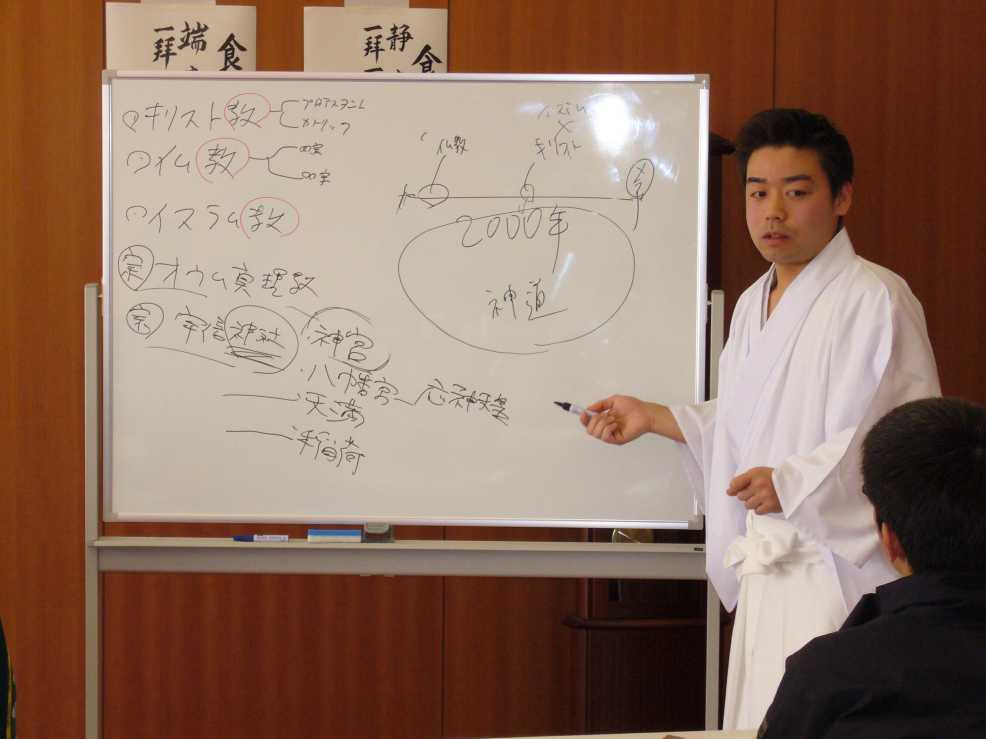 食
端
一拝
食
静
一拝
キリスト教
プロテスタント
カトリック
イム教
○宗
○宗
イスラム教
宗 オウム真理教
宗 宇信神社
・神宮
・八幡宮 応神天皇
・天満
・稲荷
仏教
イスラム
キリスト
2000年
神道